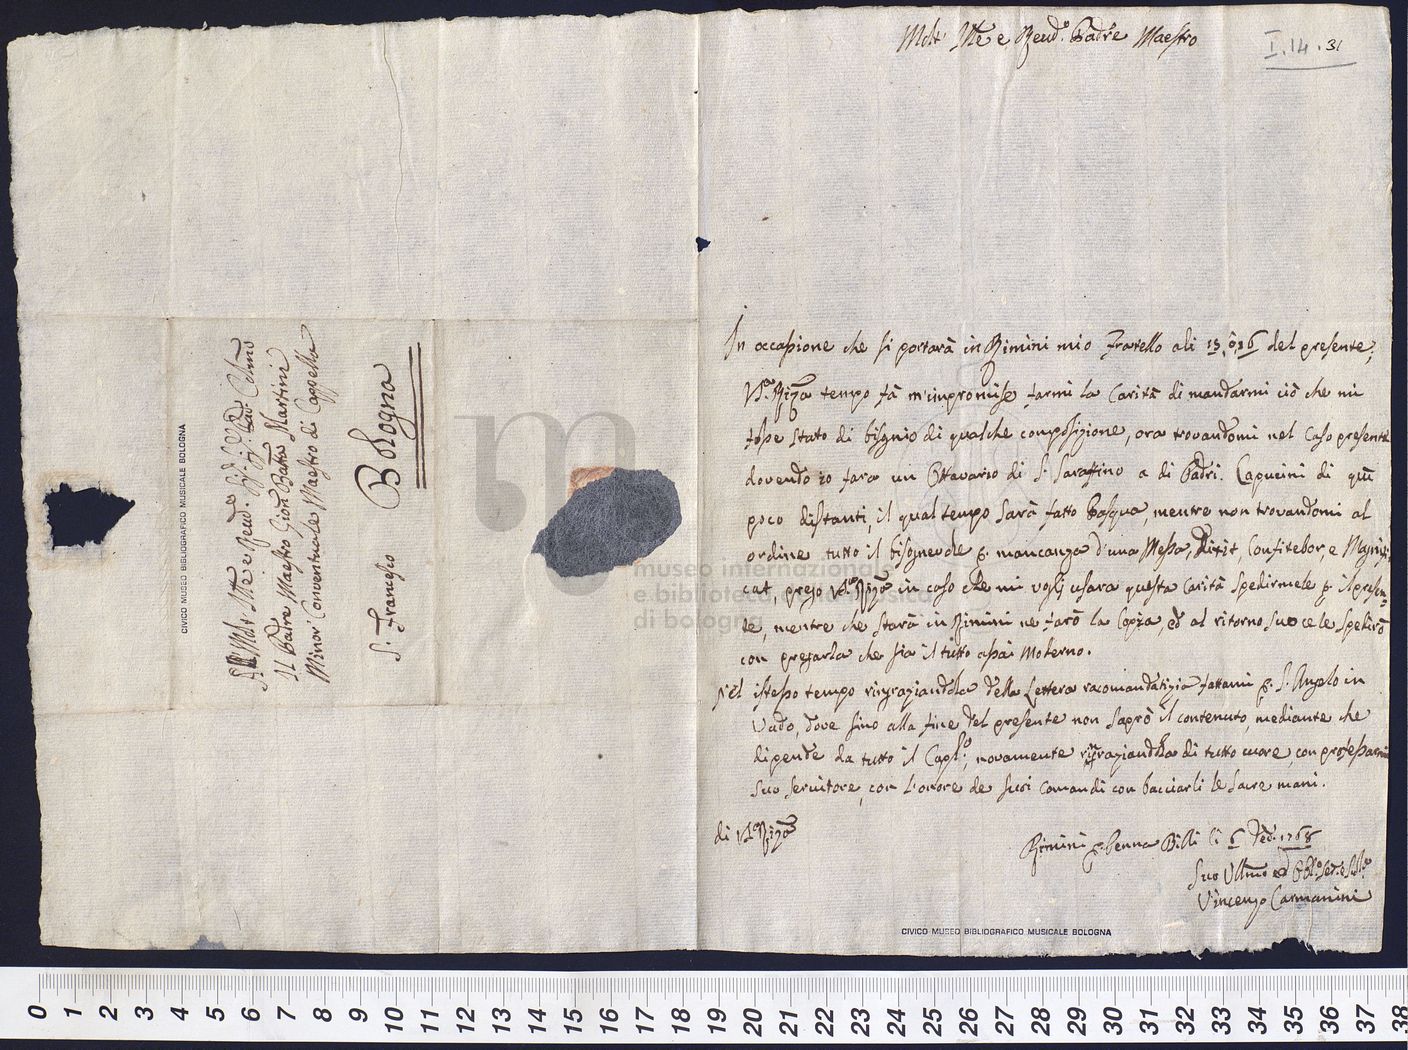 Molt' Ill.re e Reud.o Padre Maestro
I.14.31
In occasione che si portarà in Rimini mio Fratello ali 15, ò 16 del presente,
V.a Riza tempo fà m'inpromise farmi la Carità di mandarmi ciò che mi
fosse stato di bisgnio di qualche composizione, ora trovandomi nel Caso presente
dovendo io fara un Ottavario di S. Saraffino a di Padri Capucini di quì
poco distanti, il qual tempo sarà fatto Pasqua, mentre non trovandomi al
ordine tutto il bisognevole p. mancanza d'una Messa, Dixit, Confitebor, e Magnifi,
cat, prego V.a Riza in caso che mi vogli usara questa Carità spedirmele p. il presen=
te, mentre che starà in Rimini ne farò la Copia, ed al ritorno suo ce le spedirò
con pregarla che sia il tutto assai moderno.
Nel istesso tempo rigraziandola della Lettera racomandatizia fattami p. S. Angelo in
Vado, dove sino alla fine del presente non saprò il contenuto, mediante che
dipende da tutto il Capl.o, novamente ringraziandola di tutto cuore, con professarmi
suo servitore, con l'onore de suoi Comandi con bacciarli le sacre mani.
di V.a Riza
Rimini p. Penna Billi li 6 Feb. 1768
Suo Vllmo ed Obbl.o Ser.e
Vincenzo Carmanini
CIVICO MUSEO BIBLIOGRAFICO MUSICALE BOLOGNA
Al Molt Ill.re e Reud.o
Il Padre Maestro Gioan Batta Martini
Minor Conventuale Maestro di Cappella
S. Francesco Bologna
CIVICO MUSEO BIBLIOGRAFICO MUSICALE BOLOGNA
m
museo internazionale
e biblioteca della musica
di bologna
0 1 2 3 4 5 6 7 8 9 10 11 12 13 14 15 16 17 18 19 20 21 22 23 24 25 26 27 28 29 30 31 32 33 34 35 36 37 38